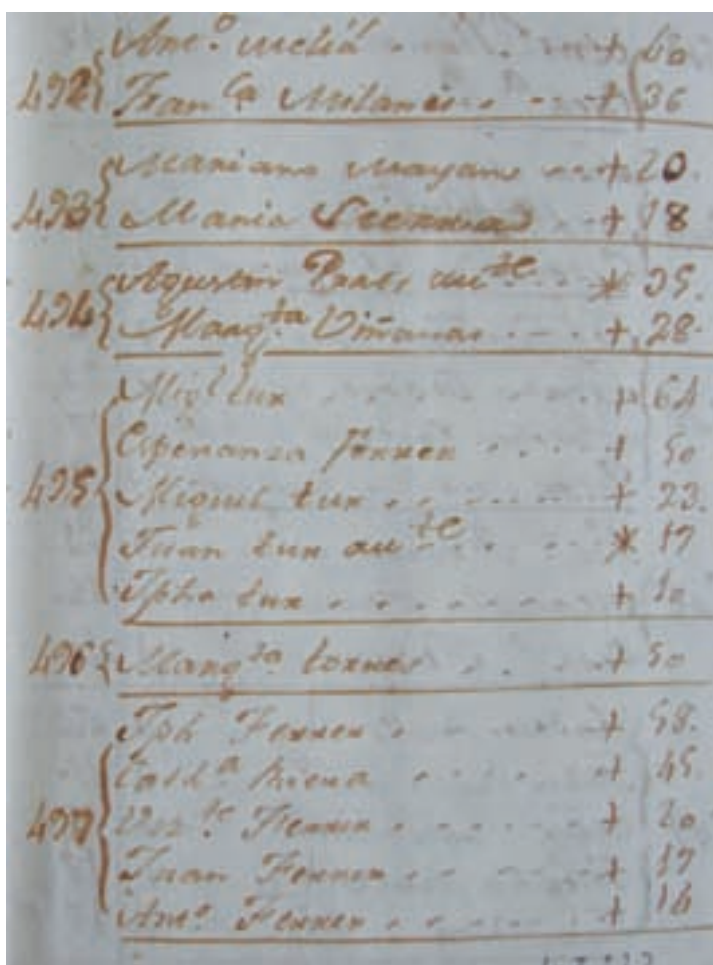 492 Ant.º Meliá + 40
Fran.ca Milanes + 36
493 Mariano Mayans + 20.
Maria + 18
494 Agustin Prats au.te * 35.
Marg.ta Viñanas + 28.
495 Mig.l tur + 64
Esperanza Ferrer + 50
Miguel tur + 23.
Juan tur au.te * 17
Jpha tur + 10
496 Marg.ta torres + 50
497 Jph Ferrer + 58.
Cath.a Riera + 45.
Vez.te Ferrer + 20
Juan Ferrer + 17
Ant.º Ferrer + 14